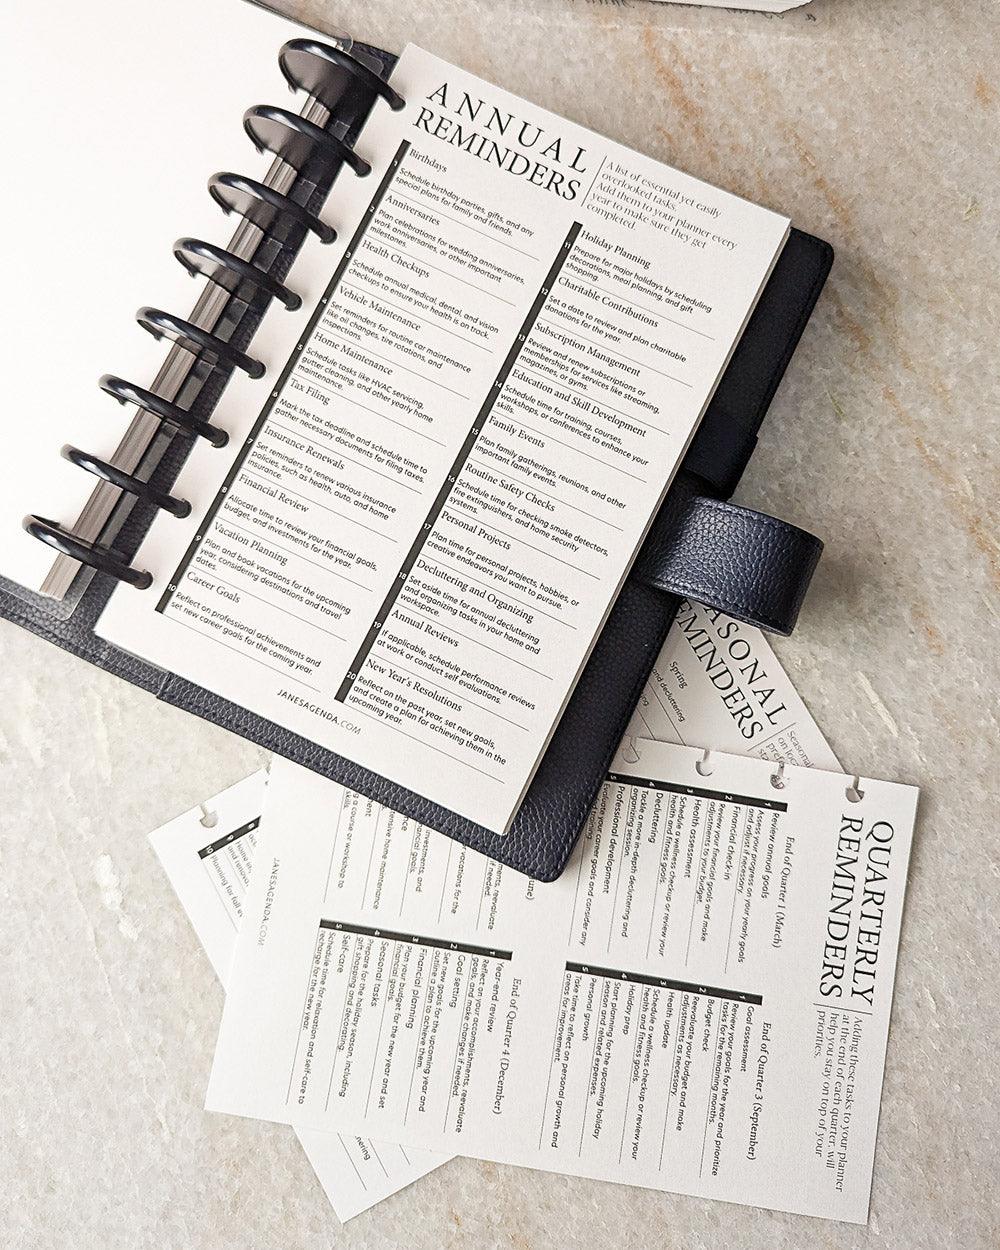 ANNUAL
REMINDERS
A list of essential yet easily
overlooked tasks.
Add them to your planner every
year to make sure they get
completed.
1
Birthdays
Schedule birthday parties, gifts, and any
special plans for family and friends.
2
Anniversaries
Plan celebrations for wedding anniversaries,
work anniversaries, or other important
milestones.
3
Health Checkups
Schedule annual medical, dental, and vision
checkups to ensure your health is on track.
4
Vehicle Maintenance
Set reminders for routine car maintenance
like oil changes, tire rotations, and
inspections.
5
Home Maintenance
Schedule tasks like HVAC servicing,
gutter cleaning, and other yearly home
maintenance.
6
Tax Filing
Mark the tax deadline and schedule time to
gather necessary documents for filing taxes.
7
Insurance Renewals
Set reminders to renew various insurance
policies, such as health, auto, and home
insurance.
8
Financial Review
Allocate time to review your financial goals,
budget, and investments for the year.
9
Vacation Planning
Plan and book vacations for the upcoming
year, considering destinations and travel
dates.
10
Career Goals
Reflect on professional achievements and
set new career goals for the coming year.
11
Holiday Planning
Prepare for major holidays by scheduling
decorations, meal planning, and gift
shopping.
12
Charitable Contributions
Set a date to review and plan charitable
donations for the year.
13
Subscription Management
Review and renew subscriptions or
memberships for services like streaming,
magazines, or gyms.
14
Education and Skill Development
Schedule time for training, courses,
workshops, or conferences to enhance your
skills.
15
Family Events
Plan family gatherings, reunions, and other
important family events.
16
Routine Safety Checks
Schedule time for checking smoke detectors,
fire extinguishers, and home security
systems.
17
Personal Projects
Plan time for personal projects, hobbies, or
creative endeavors you want to pursue.
18
Decluttering and Organizing
Set aside time for annual decluttering
and organizing tasks in your home and
workspace.
19
Annual Reviews
If applicable, schedule performance reviews
at work or conduct self evaluations.
20
New Year's Resolutions
Reflect on the past year, set new goals,
and create a plan for achieving them in the
upcoming year.
JANESAGENDA.COM
ASONAL
EMINDERS
Seasonal
on loc
Spring
and decluttering
QUARTERLY
REMINDERS
Adding these tasks to your planner
at the end of each quarter, will
help you stay on top of your
priorities.
End of Quarter 1 (March)
1
Review annual goals
Assess your progress on your yearly goals
and adjust if necessary.
2
Financial check-in
Review your financial goals and make
adjustments to your budget.
3
Health assessment
Schedule a wellness checkup or review your
health and fitness goals.
4
Decluttering
Tackle a more in-depth decluttering and
organizing session.
5
Professional development
Evaluate your career goals and consider any
End of Quarter 3 (September)
1
Goal assessment
Review your goals for the year and prioritize
tasks for the remaining months.
2
Budget check
Reevaluate your budget and make
adjustments as necessary.
3
Health update
Schedule a wellness checkup or review your
health and fitness goals.
4
Holiday prep
Start planning for the upcoming holiday
season and related expenses.
5
Personal growth
Take time to reflect on personal growth and
areas for improvement.
June)
investments, and
vacations for the
ensive home maintenance
a course or workshop to
skills.
End of Quarter 4 (December)
1
Year-end review
Reflect on your accomplishments, reevaluate
goals, and make changes if needed.
2
Goal setting
Set new goals for the upcoming year and
outline a plan to achieve them.
3
Financial planning
Plan your budget for the new year and set
financial goals.
4
Seasonal tasks
Prepare for the holiday season, including
gift shopping and decorating.
5
Self-care
Schedule time for relaxation and self-care to
recharge for the new year.
JANESAGENDA.COM
9
10
Planning for fall